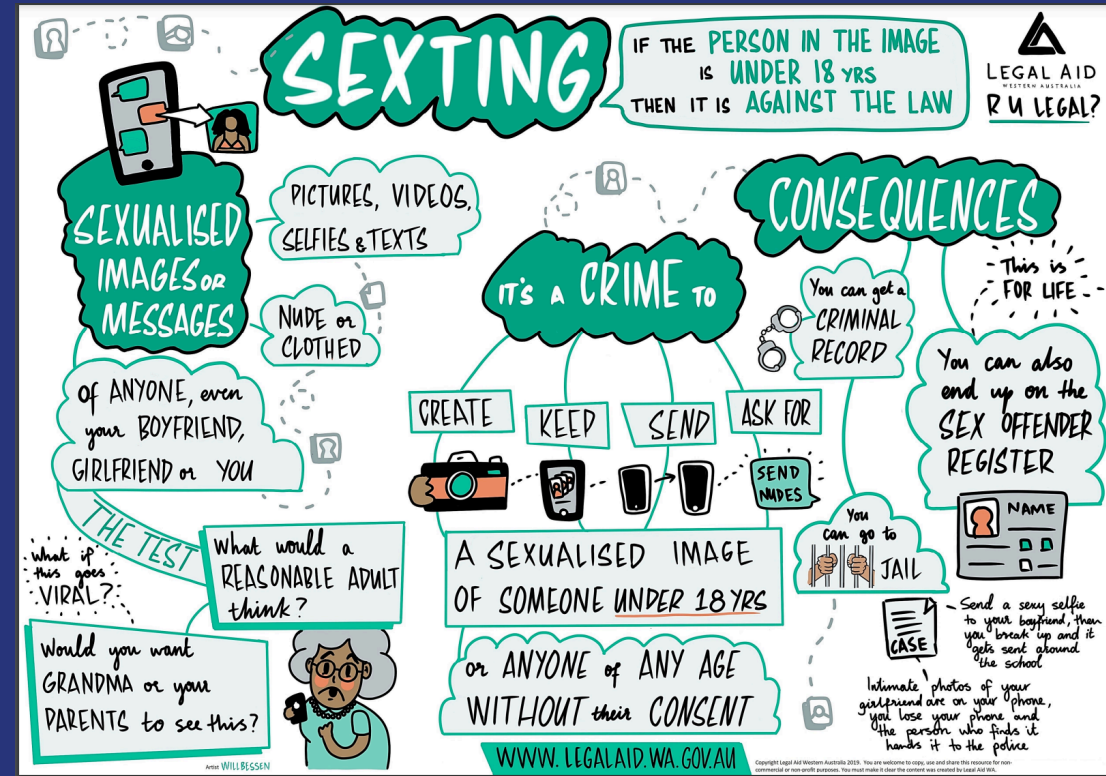 SEXTING
IF THE PERSON IN THE IMAGE
IS UNDER 18 YRS
THEN IT IS AGAINST THE LAW
LEGAL AID
WESTERN AUSTRALIA
R U LEGAL?
SEXUALISED
IMAGES OR
MESSAGES
PICTURES, VIDEOS,
SELFIES & TEXTS
NUDE or
CLOTHED
of ANYONE, even
your BOYFRIEND,
GIRLFRIEND or YOU
THE TEST
What if
this goes
VIRAL?
What would a
REASONABLE ADULT
think?
Would you want
GRANDMA or your
PARENTS to see this?
Artist WILL BESSEN
IT'S A CRIME TO
CREATE
KEEP
SEND
ASK FOR
SEND
NUDES
A SEXUALISED IMAGE
OF SOMEONE UNDER 18 YRS
or ANYONE of ANY AGE
WITHOUT their CONSENT
WWW.LEGALAID.WA.GOV.AU
CONSEQUENCES
You can get a
CRIMINAL
RECORD
This is
FOR LIFE
You can also
end up on the
SEX OFFENDER
REGISTER
NAME
You
can go to
JAIL
CASE
Send a sexy selfie
to your boyfriend, then
you break up and it
gets sent around
the school
Intimate photos of your
girlfriend are on your phone,
you lose your phone and
the person who finds it
hands it to the police
Copyright Legal Aid Western Australia 2019. You are welcome to copy, use and share this resource for non-
commercial or non-profit purposes. You must make it clear the content was created by Legal Aid WA.